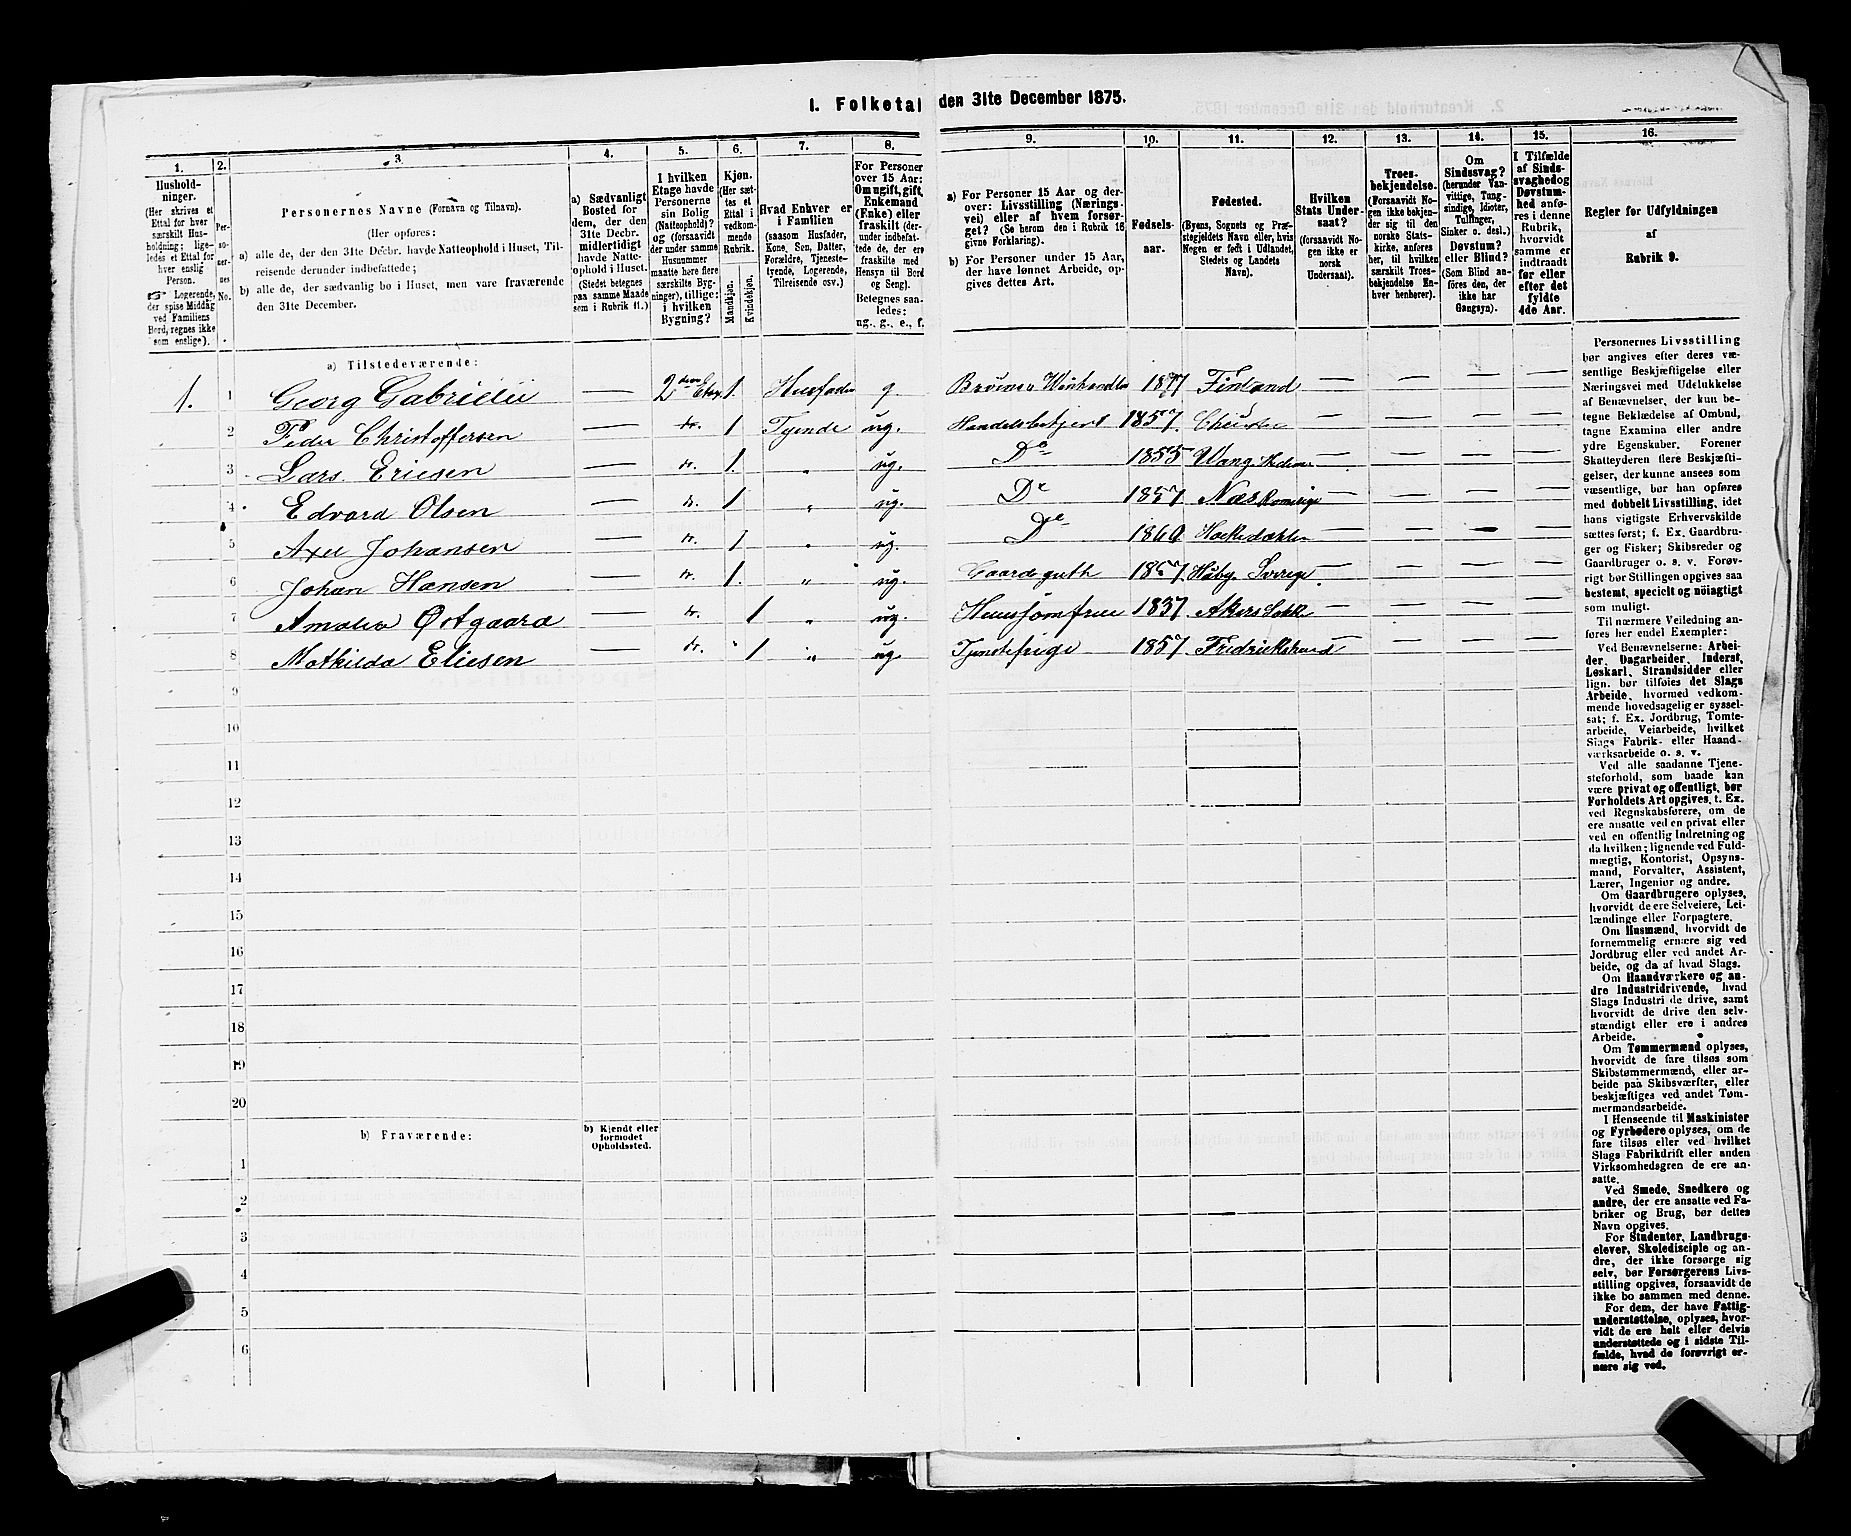 1. Folketal den 31te December 1875.
1. 2. 3. 4. 5. 6. 7. 8. 9. 10. 11. 12. 13. 14. 15. 16.
Hushold-
ninger.
(Her skrives et
Ettal for hver
særskilt Hus-
holdning; lige-
ledes et Ettal for
hver enslig
Person.
☞ Logerende,
der spise Middag
ved Familiens
Bord, regnes ikke
som enslige).
Per-
so-
ner-
nes
No.
Personernes Navne (Fornavn og Tilnavn).
(Her opføres:
a) alle de, der den 31te Decbr. havde Natteophold i Huset, Til-
reisende derunder indbefattede;
b) alle de, der sædvanlig bo i Huset, men vare fraværende
den 31te December.
a) Sædvanligt
Bosted for
dem, der den
31te Decbr.
midlertidigt
havde Natte-
ophold i Huset.
(Stedet betegnes
paa samme Maade
som i Rubrik 11.)
I hvilken
Etage havde
Personerne
sin Bolig
(Natteophold)?
og (forsaavidt
der under samme
Husnummer
maatte høre flere
særskilte Byg-
ninger), tillige:
i hvilken
Bygning?
Kjøn.
(Her sæt-
tes et
Ettal i
vedkom-
mende
Rubrik.
Mandkjøn.
Kvindekjøn.
Hvad Enhver er
i Familien
(saasom Husfader,
Kone, Søn, Datter,
Forældre, Tjeneste-
tyende, Logerende,
Tilreisende osv.)
For Personer
over 15 Aar:
Om ugift, gift,
Enkemand
(Enke) eller
fraskilt (der-
under indbefat-
tede de, der ere
fraskilte med
Hensyn til Bord
og Seng).
Betegnes saa-
ledes:
ug., g., e., f.
a) For Personer 15 Aar og der-
over: Livsstilling (Nærings-
vei) eller af hvem forsør-
get? (Se herom den i Rubrik 16
givne Forklaring).
b) For Personer under 15 Aar,
der have lønnet Arbeide, op-
gives dettes Art.
Fødsels-
aar.
Fødested.
(Byens, Sognets og Præ-
stegjeldets Navn eller, hvis
Nogen er født i Udlandet,
Stedets og Landets
Navn).
Hvilken
Stats Under-
saat?
(forsaavidt No-
gen ikke er
norsk
Undersaat).
Troes-
bekjendelse.
(Forsaavidt No-
gen ikke bekjen-
der sig til den
norske Stats-
kirke, anføres
her, til hvilken
særskilt Troes-
bekjendelse En-
hver henhører).
Om
Sindssvag?
(herunder Van-
vittige, Tung-
sindige, Idioter,
Tullinger,
Sinker o. desl.)
Døvstum?
eller Blind?
(Som Blind an-
føres den, der
ikke har
Gangsyn).
I Tilfælde
af Sinds-
svaghed og
Døvstum-
hed anfø-
res i denne
Rubrik,
hvorvidt
samme er
indtraadt
før eller
efter det
fyldte
4de Aar.
Regler for Udfyldningen
af
Rubrik 9.
a) Tilstedeværende:
1. 1 Georg — 2den Etag. 1. Husfader g. 18 Finland — — — —
2 Peder Christoffersen — do. 1 Tyende ug. Handelsbetjent 1857. — — — —
3 Lars Ericsen — do. 1. " ug. Do 1855 Wang — — — —
4 Edvard Olsen — do. 1 " ug. Do 1857 Næs Romerige — — — —
5 Axel Johansen — do. 1 " ug. Do 1860 — — — —
6 Johan Hansen — do. 1. " ug. Gaardsguth 1857. — — — —
7 Amalia Østgaard — do. 1 " ug. Huusjomfrue 1837 Akers — — — —
8 Mathilda Eliesen — do. 1 " ug Tjenestepige 1857 — — — —
9
10
11
12
13
14
15
16
17
18
19
20
b) Fraværende:
b) Kjendt eller
formodet
Opholdssted.
1
2
3
4
5
6
Personernes Livsstilling
bør angives efter deres væ-
sentlige Beskjæftigelse eller
Næringsvei med Udelukkelse
af Benævnelser, der kun be-
tegne Beklædelse af Ombud,
tagne Examina eller andre
ydre Egenskaber. Forener
Skatteyderen flere Beskjæfti-
gelser, der kunne ansees som
væsentlige, bør han opføres
med dobbelt Livsstilling, idet
hans vigtigste Erhvervskilde
sættes først; f. Ex. Gaardbru-
ger og Fisker; Skibsreder og
Gaardbruger o. s. v. Forøv-
rigt bør Stillingen opgives saa
bestemt, specielt og nöiagtigt
som muligt.
Til nærmere Veiledning an-
føres her endel Exempler:
Ved Benævnelserne: Arbei-
der, Dagarbeider, Inderst,
Løskarl, Strandsidder eller
lign. bør tilføies det Slags
Arbeide, hvormed vedkom-
mende hovedsagelig er syssel-
sat; f. Ex. Jordbrug, Tomte-
arbeide, Veiarbeide, hvilket
Slags Fabrik- eller Haand-
værksarbeide o. s. v.
Ved alle saadanne Tjene-
steforhold, som baade kan
være privat og offentligt, bør
Forholdets Art opgives, t. Ex.
ved Regnskabsførere, om de
ere ansatte ved en privat eller
ved en offentlig Indretning og
da hvilken; lignende ved Fuld-
mægtig, Kontorist, Opsyns-
mand, Forvalter, Assistent,
Lærer, Ingeniør og andre.
Om Gaardbrugere oplyses,
hvorvidt de ere Selveiere, Lei-
lændinge eller Forpagtere.
Om Husmænd, hvorvidt de
fornemmelig ernære sig ved
Jordbrug eller ved andet Ar-
beide, og da af hvad Slags.
Om Haandværkere og an-
dre Industridrivende, hvad
Slags Industri de drive, samt
hvorvidt de drive den selv-
stændigt eller ere i andres
Arbeide.
Om Tømmermænd oplyses,
hvorvidt de fare tilsøs som
Skibstømmermænd, eller ar-
beide paa Skibsværfter, eller
beskjæftiges ved andet Tøm-
mermandsarbeide.
I Henseende til Maskinister
og Fyrbødere oplyses, om de
fare tilsøs eller ved hvilket
Slags Fabrikdrift eller anden
Virksomhedsgren de ere an-
satte.
Ved Smede, Snedkere og
andre, der ere ansatte ved Fa-
briker og Brug, bør dettes
Navn opgives.
For Studenter, Landbrugs-
elever, Skoledisciple og an-
dre, der ikke forsørge sig
selv, bør Forsørgerens Livs-
stilling opgives, forsaavidt de
ikke bo sammen med denne.
For dem, der have Fattig-
understøttelse, oplyses, hvor-
vidt de ere helt eller delvis
understøttede og i sidste Til-
fælde, hvad de forøvrigt er-
nære sig ved.